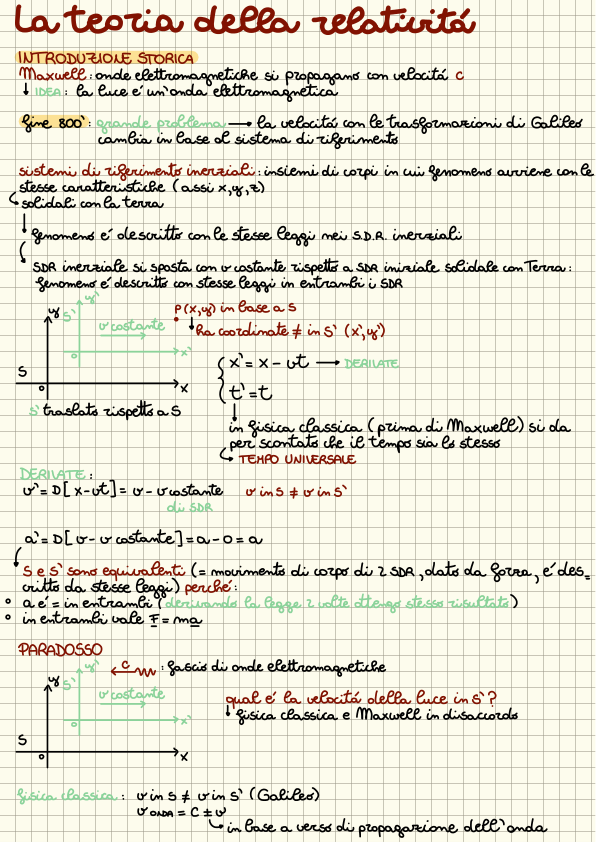 La teoria della relatività
INTRODUZIONE STORICA
Maxwell: onde elettromagnetiche si propagano con velocità c
↓ IDEA: la luce é un'onda elettromagnetica
fine 800': grande problema → la velocità con le trasformazioni di Galileo
cambia in base al sistema di riferimento
sistemi di riferimento inerziali: insiemi di corpi in cui fenomeno avviene con le
stesse caratteristiche (assi x,y,z)
solidali con la terra
fenomeno é descritto con le stesse leggi nei S.D.R. inerziali
SDR inerziale si sposta con v costante rispetto a SDR iniziale solidale con Terra:
fenomeno é descritto con stesse leggi in entrambi i SDR
y S' y'
v costante
x'
S
o
x
S' traslato rispetto a S
P(x,y) in base a S
ha coordinate ≠ in S' (x',y')
x' = x - vt → DERIVATE
t' = t
in fisica classica (prima di Maxwell) si da
per scontato che il tempo sia lo stesso
TEMPO UNIVERSALE
DERIVATE:
v' = D[x-vt] = v - v costante v in S ≠ v in S'
di SDR
a' = D[v - v costante] = a - 0 = a
S e S' sono equivalenti (= movimento di corpo di 2 SDR, dato da forza, é des=
critto da stesse leggi) perché:
° a é = in entrambi (derivando la legge 2 volte ottengo stesso risultato)
° in entrambi vale F = ma
PARADOSSO
c : fascio di onde elettromagnetiche
y S' y'
v costante
x'
S
o
x
qual é la velocità della luce in S'?
↓ fisica classica e Maxwell in disaccordo
fisica classica: v in S ≠ v in S' (Galileo)
v ONDA = C ± v
in base a verso di propagazione dell'onda